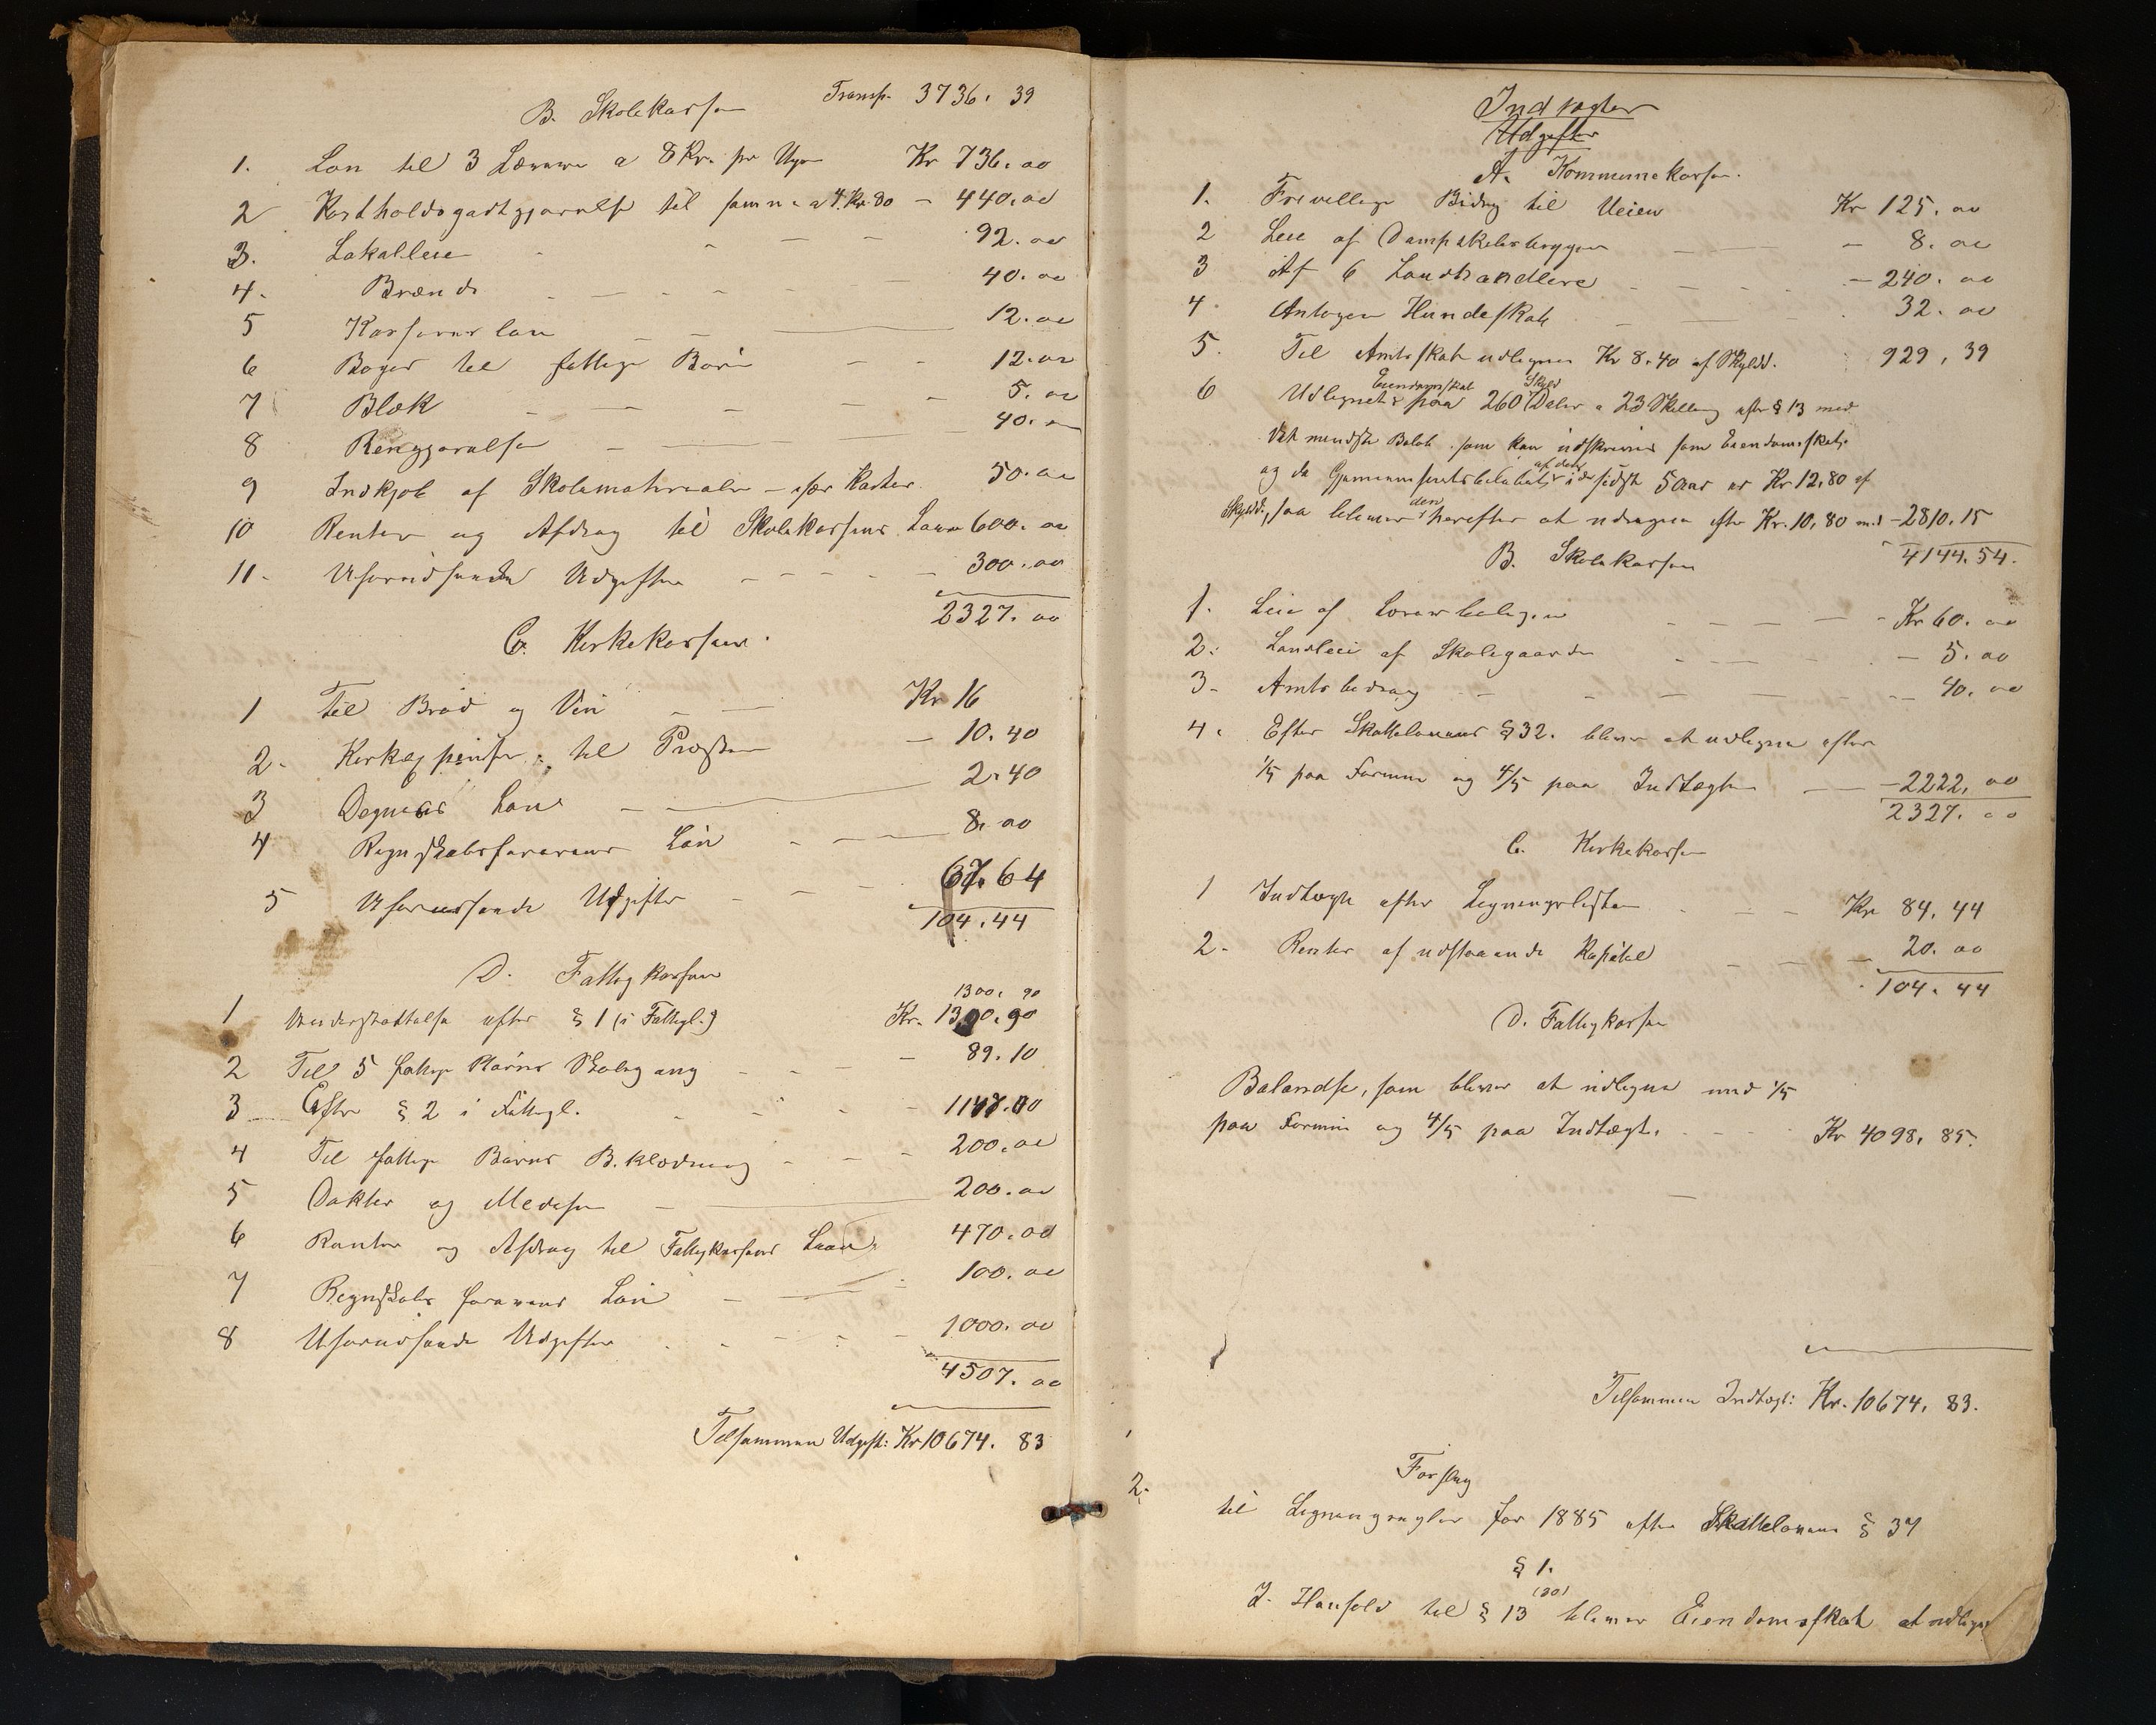 Transp. 3736. 39
B. Skolekassen
1. Løn til 3 Lærere a 8 Kr. pr Uge Kr 736. 00
2 Kostholdsgodtgjørelse til samme a 4. Kr. 80 - 440. 00
3. Lokalleie - - - 92. 00
4. Brænde - - - 40. 00
5 Kasserer løn - - 12. 00
6 Bøger til fattige Børn - - 12. 00
7 Blæk - - - 5. 00
8 Rengjørelse - - 40. 00
9 Indkjøb af Skolemateriale - især Karter 50. 00
10 Renter og Afdrag til Skolekassens Laan 600. 00
11. Uforudseede Udgifter - - - 300. 00
2327. 00
C. Kirkekassen.
1 til Brød og Vin - - Kr 16
2. til Præsten - 10. 40
3 Degnens Løn - - 2. 40
4 Regnskabsførerens Løn - - 8. 00
5 Uforudseede Udgifter - - 67. 64
104. 44
D. Fattigkassen
1300. 90
1 Understøttelse efter § 1 (i Fattigl.) Kr. 1300. 90
2 Til 5 fattige Børns Skolegang - - 89. 10
3 Efter § 2 i Fattigl. - - 1147. 00
4 Til fattige Børns Beklædning - - - 200. 00
5 Dokter og Medisin - 200. 00
6 Renter og Afdrag til Fattigkassens Laan 470. 00
7 Regnskabs førerens Løn - - 100. 00
8 Uforudseede Udgifter - - - 1000. 00
4507. 00
Tilsammen Udgift: Kr 10674. 83
Indtægter
Udgifter
A. Kommunekassen.
1. Frivillige Bidrag til Veien Kr 125. 00
2 Leie af Dampskibsbryggen - - 8. 00
3 Af 6 Landhandlere - - - - 240. 00
4. Antagen Hundeskat - - 32. 00
5. Til Amtsskat udlignes Kr 8. 40 af Skyldd. 929, 39
Eiendomsskat Skyld
6 Udlignet paa 260 Daler a 23 Skilling efter § 13 med
det mindste Beløb som kan udskrives som Eiendomsskat,
af den
og da Gjennemsnitsbeløbet i de sidste 5 Aar er Kr 12,80 af
den
Skyldd., saa bliver herefter at udregne efter Kr. 10,80 med - 2810. 15
4144. 54.
B. Skolekassen
1. Leie af - - - - Kr 60. 00
2. Landleie af Skolegaarden - - - - 5. 00
3. Amtsbidrag - - - - 40. 00
4. Efter Skattelovens § 32. bliver at udligne efter
1/5 paa Formue og 4/5 paa Indtægten - 2222, 00
2327. 00
C. Kirkekassen
1 Indtægt efter Ligningslisten - - - Kr 84. 44
2. Renter af udstaaende Kapital - - - 20. 00
104. 44
D. Fattigkassen
Balandse, som bliver at udligne med 1/5
paa Formue og 4/5 paa Indtægt. - - Kr 4098, 85.
Tilsammen Indtægt: Kr. 10674. 83.
2. Forslag
til Ligningsregler for 1885 efter Skattelovens § 37
§ 1.
(30)
I Henhold til § 13 bliver Eiendomsskat at udligne